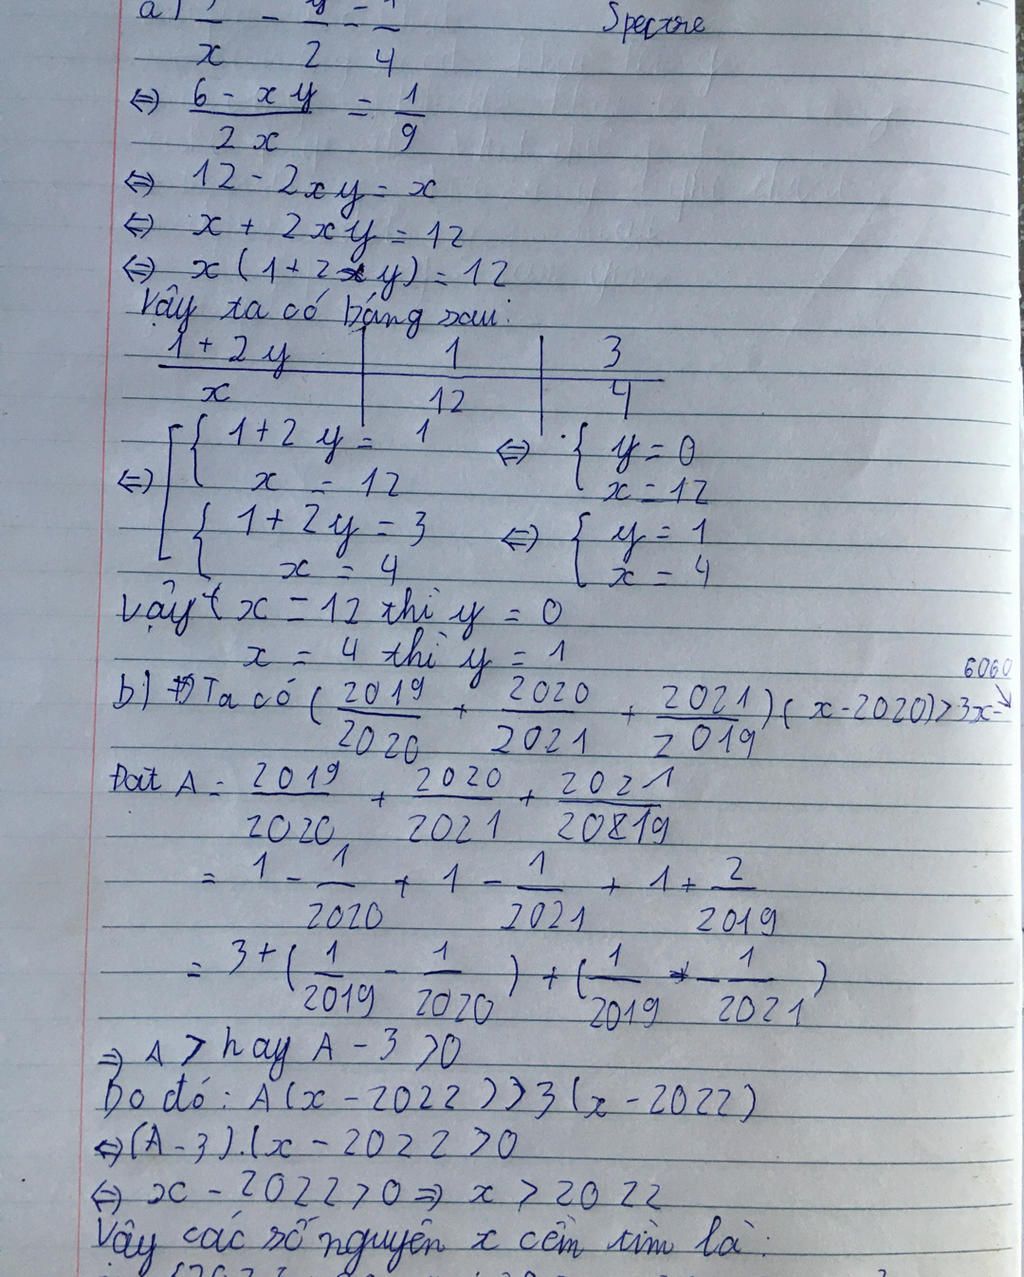 a) 3/x - y/2 = 1/4 Spectre
⇔ (6 - xy)/(2x) = 1/9
⇔ 12 - 2xy = x
⇔ x + 2xy = 12
⇔ x(1 + 2y) = 12
Vậy ta có bảng sau:
1 + 2y | 1 | 3
x | 12 | 4
⇔ [ { 1 + 2y = 1 ⇔ { y = 0
x = 12 x = 12
{ 1 + 2y = 3 ⇔ { y = 1
x = 4 x = 4
Vậy { x = 12 thì y = 0
x = 4 thì y = 1
6060
b) Ta có (2019/2020 + 2020/2021 + 2021/2019)(x - 2020) > 3x -
Đặt A = 2019/2020 + 2020/2021 + 2021/2019
= 1 - 1/2020 + 1 - 1/2021 + 1 + 2/2019
= 3 + (1/2019 - 1/2020) + (1/2019 - 1/2021)
⇒ A > hay A - 3 > 0
Do đó: A(x - 2022) > 3(x - 2022)
⇔ (A - 3).(x - 2022 > 0
⇔ x - 2022 > 0 ⇒ x > 2022
Vậy các số nguyên x cần tìm là: